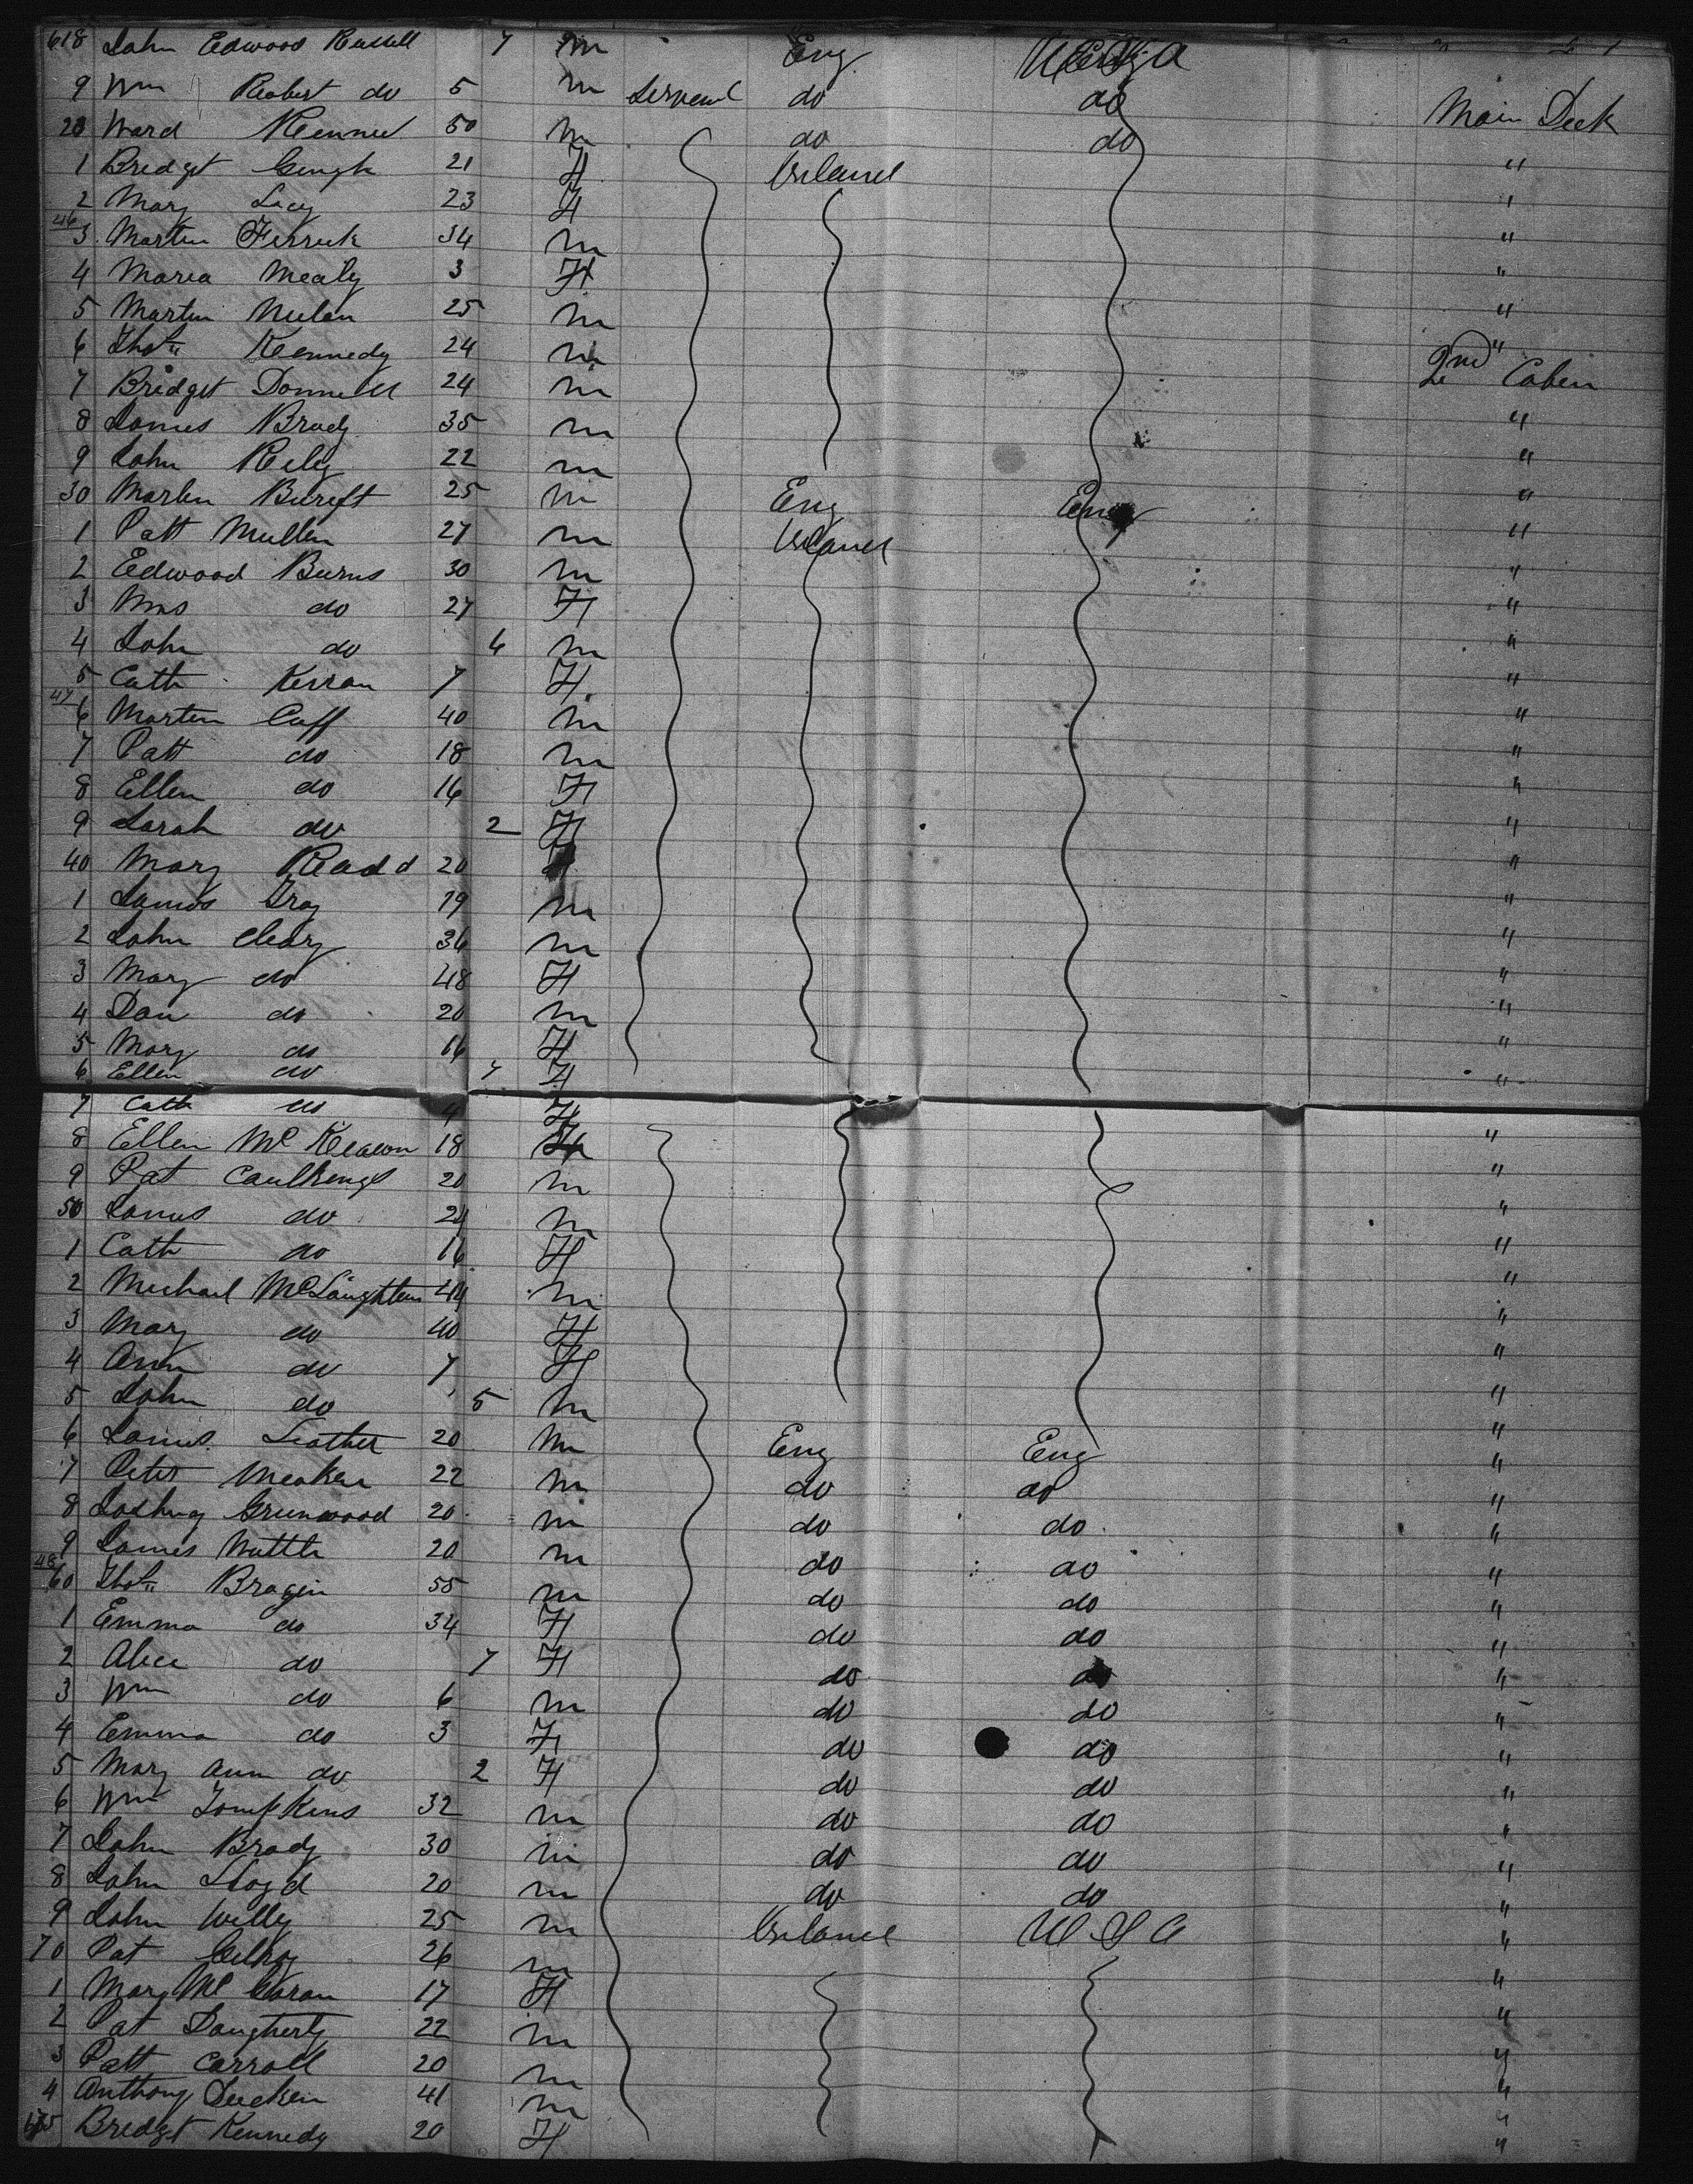 618 John Edwood Russell 7 m Eng U S A
9 Wm Robert do 5 m Servant do do Main Deck
20 Ward Kennel 50 m do do
1 Bridget Gough 21 F Ireland "
2 Mary Lacy 23 F "
46 3 Martin Ferrick 34 m "
4 Maria Mealy 3 F "
5 Martin Nulan 25 m "
6 Thos Kennedy 24 m "
7 Bridget Donnell 24 m 2nd Cabin
8 James Brady 35 m "
9 John Rely 22 m "
30 Marten 25 m Eng Eng "
1 Patt Mullen 27 m Ireland "
2 Edwood Burns 30 m "
3 Mrs do 27 F "
4 John do 6 m "
5 Cath Kirran 7 F "
47 6 Martin Caff 40 m "
7 Patt do 18 m "
8 Ellen do 16 F "
9 Sarah do 2 F "
40 Mary Readd 20 "
1 James Gray 19 m "
2 John Cleary 36 m "
3 Mary do 48 F "
4 Dan do 20 m "
5 Mary do 16 F "
6 Ellen do 7 F "
7 Cath do 4 F
8 Ellen McKeaeon 18 F "
9 Pat 20 m "
50 James do 24 m "
1 Cath do 16 F "
2 Michael McLaughten 44 m "
3 Mary do 40 F "
4 Ann do 7 F "
5 John do 5 m "
6 James Leather 20 m Eng Eng "
7 Peter Meaken 22 m do do "
8 Joshuy Greenwood 20 m do do "
9 James Nuttle 20 m do do "
48 60 Thos Bragin 55 m do do "
1 Emma do 34 F do do "
2 Alice do 7 F do do "
3 Wm do 6 m do do "
4 Emma do 3 F do do "
5 Mary Ann do 2 F do do "
6 Wm Tompkins 32 m do do "
7 John Brady 30 m do do "
8 John Lloyd 20 m do do "
9 John Willy 25 m Ireland U S A "
70 Pat Gilroy 26 m "
1 Mary Mc Garan 17 F "
2 Pat Daugherty 22 m "
3 Patt Carroll 20 m "
4 Anthony 41 m "
675 Bridget Kennedy 20 F "